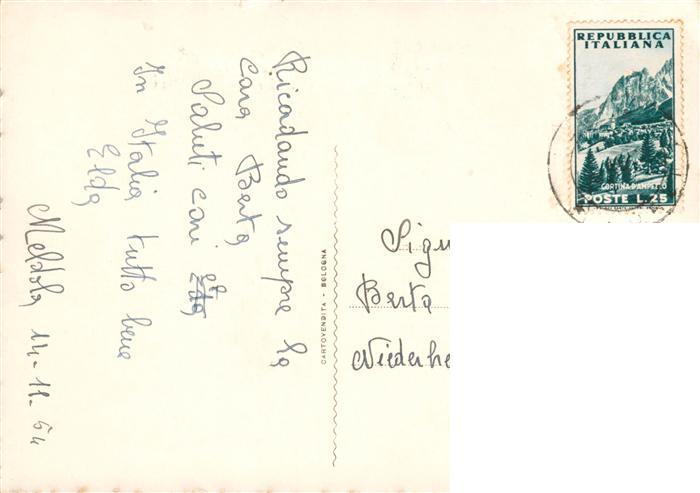 Meldola 14-11-54
Ricadando sempre la
cara Berta
Saluti cari
In Italia tutto bene
Elda
CARTOVENDITA - BOLOGNA
REPUBBLICA
ITALIANA
CORTINA D'AMPEZZO
POSTE L.25
Sign
Berta
Niederhe